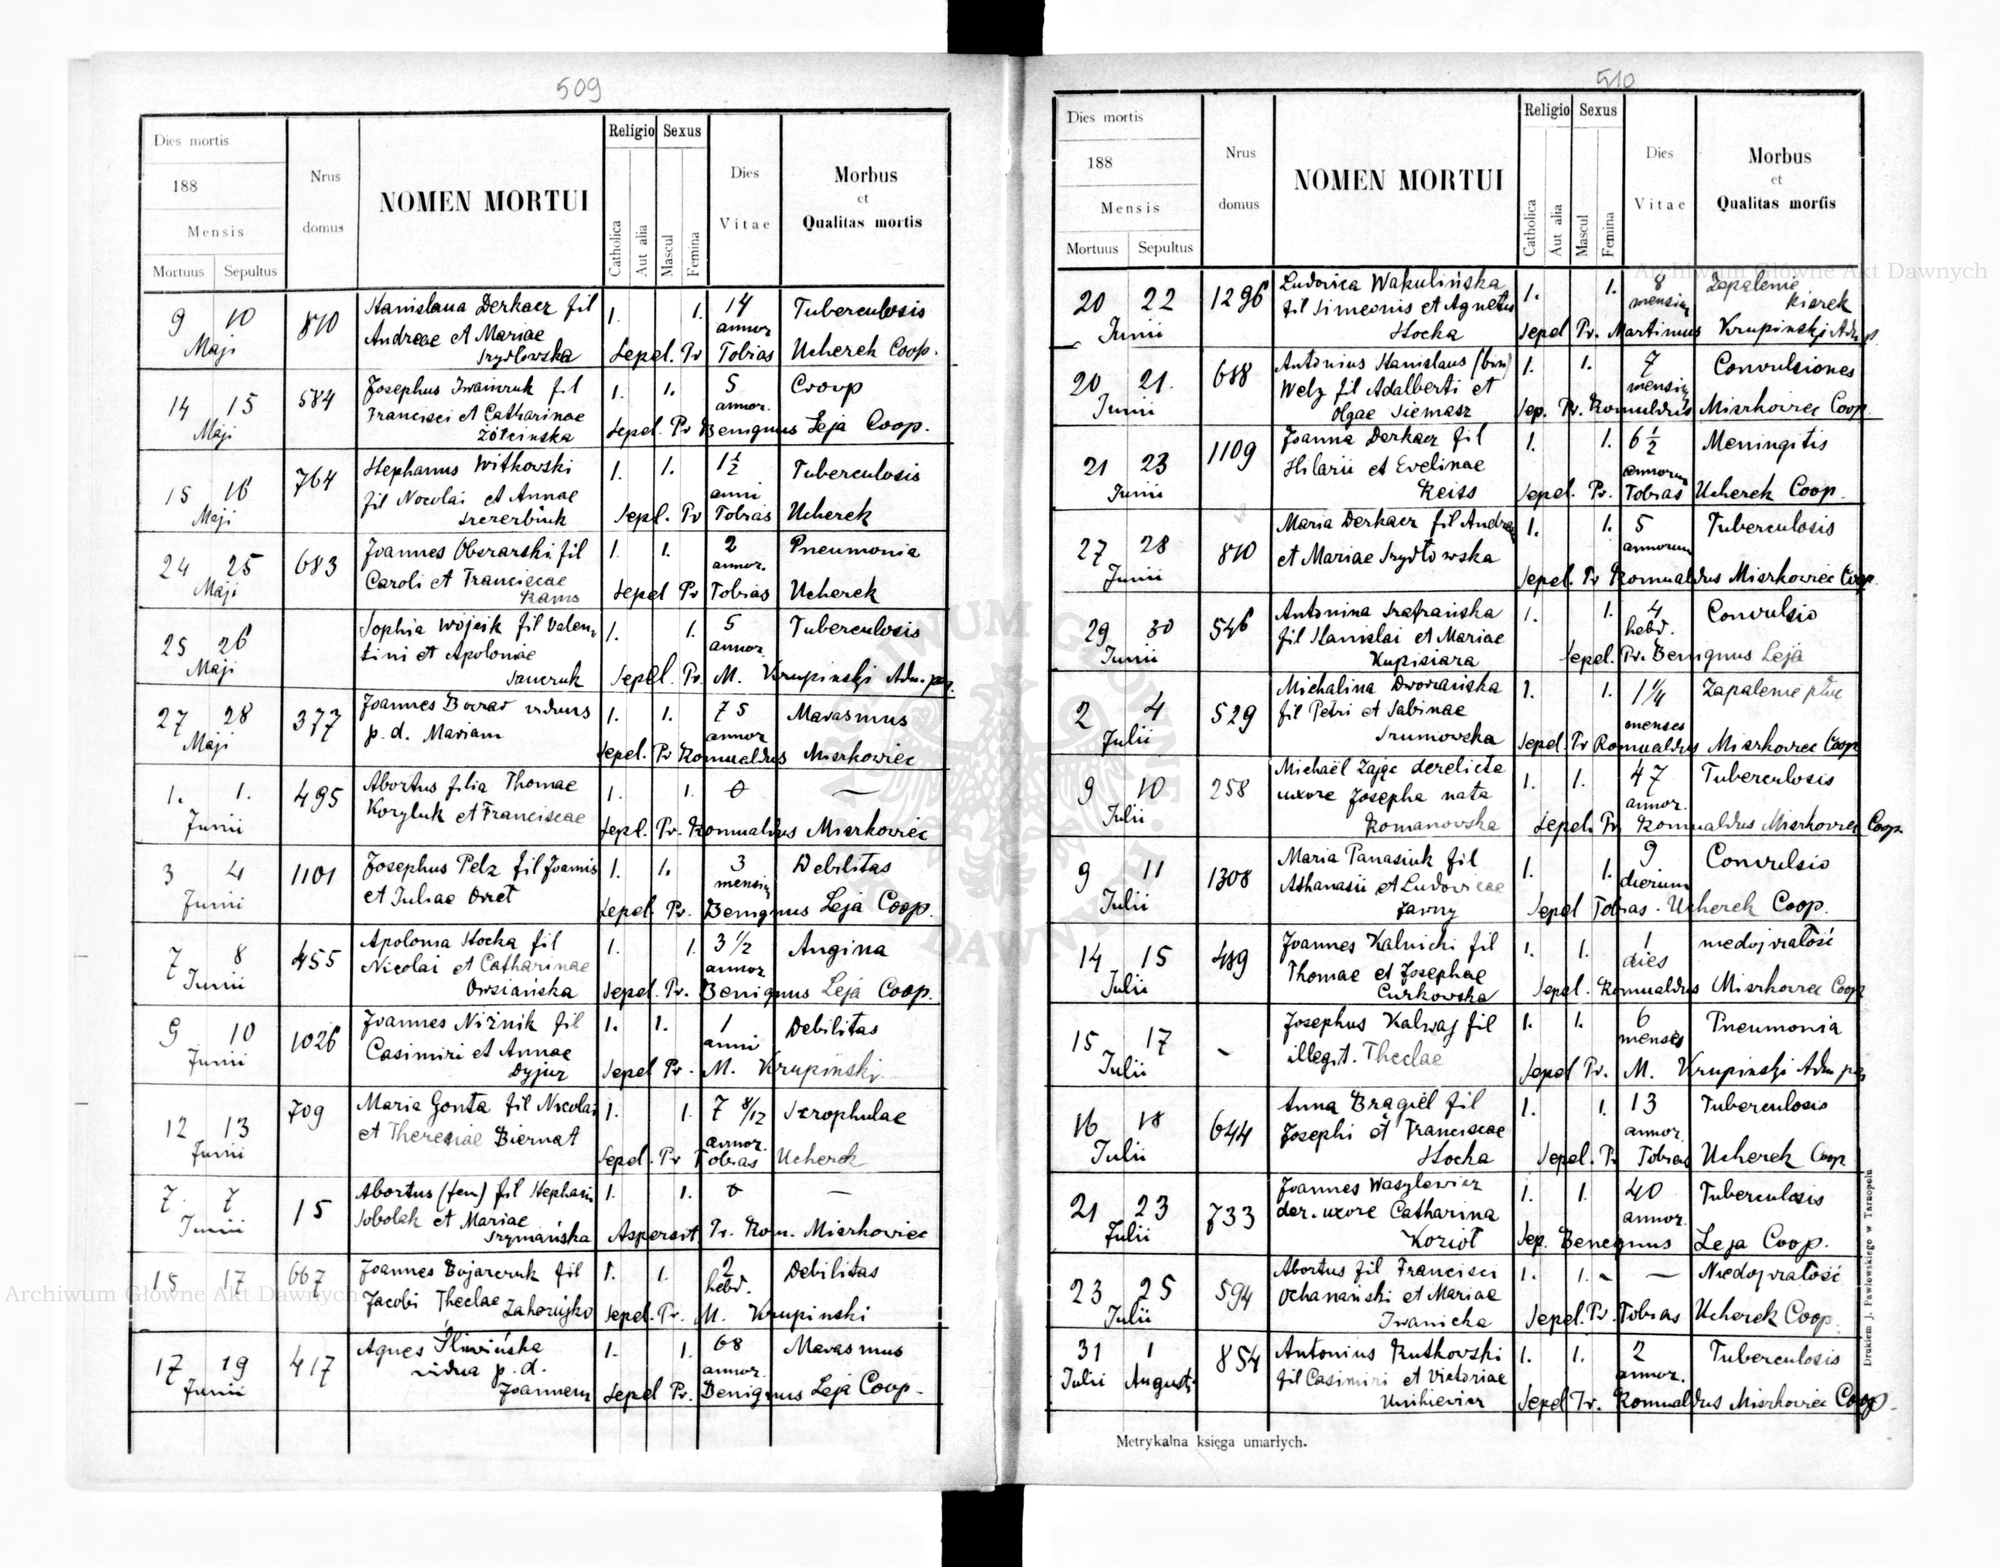 509
Dies mortis
188
Mensis
Mortuus Sepultus
Nrus
domus
NOMEN MORTUI
Religio Sexus
Catholica
Aut alia
Mascul
Femina
Dies
Vitae
Morbus
et
Qualitas mortis
9 10 810 Stanislaua Derkacz fil 1. 1. 14 Tuberculosis
Maji Andreae et Mariae annor
Szydłowska Sepel. Pr Tobias Ucherek Coop.
14 15 584 Josephus Iwainzuk fil 1. 1. 5 Croup
Maji Francisci et Catharinae annor.
Żółcińska Sepel. Pr Benignus Leja Coop.
15 16 764 Stephanus Witkovski 1. 1. 1 1/2 Tuberculosis
Maji fil Nicolai et Annae anni
Szczerbiuk Sepel. Pr Tobias Ucherek
24 25 683 Joannes Oberarski fil 1. 1. 2 Pneumonia
Maji Caroli et Franciscae annor.
Rams Sepel Pr Tobias Ucherek
25 26 Sophia Wójcik fil Valen, 1. 1. 5 Tuberculosis
Maji tini et Apoloniae annor.
Sepel. Pr. M. Krupinski Adm. par.
27 28 377 Joannes viduus 1. 1. 75 Marasmus
Maji p. d. Mariam annor
Sepel. Pr Romualdus Mierkoviec
1. 1. 495 Abortus filia Thomae 1. 1. 0 —
Junii Koryluk et Franciscae
Sepl. Pr. Romualdus Mierkoviec
3 4 1101 Josephus Pelz fil Joannis 1. 1. 3 Debilitas
Junii et Juliae mensiu
Sepel Pr. Benignus Leja Coop.
7 8 455 Apolonia Hocka fil 1. 1. 3 1/2 Angina
Junii Nicolai et Catharinae annor
Owsiańska Sepel. Pr. Benignus Leja Coop.
9 10 1026 Joannes Niżnik fil 1. 1. 1 Debilitas
Junii Casimiri et Annae anni
Dyjur Sepel Pr. M. Krupinski
12 13 709 Maria Gonta fil Nicolai 1. 1. 7 8/12 Scrophulae
Junii et Theresiae Biernat annor.
Sepel. Pr Tobias Ucherek
7. 7 15 Abortus (fem) fil Stephani 1. 1. 0 —
Junii Sobolak et Mariae
Szymańska Aspersit Pr. Rom. Mierkoviec
15 17 667 Joannes Bojarczuk fil 1. 1. 2 Debilitas
Jacobi Theclae Zahorujko hebd.
Sepel. Pr. M. Krupinski
17 19 417 Agnes Śliwińska 1. 1. 68 Marasmus
Junii vidua p. d. annor.
Joannem Sepel Pr. Benignus Leja Coop.
510
Dies mortis
188
Mensis
Mortuus Sepultus
Nrus
domus
NOMEN MORTUI
Religio Sexus
Catholica
Aut alia
Mascul
Femina
Dies
Vitae
Morbus
et
Qualitas mortis
20 22 1296 Ludovica Wakulińska 1. 1. 8 Zapalenie
Junii fil Simeonis et Agnetis mensiu kiszek
Hocka Sepel Pr. Martinus Krupinski Adm p.
20 21. 688 Antonius Stanislaus (bin) 1. 1. 7 Convulsiones
Junii Welz fil Adalberti et mensiu
Olgae Siemasz Sep. Pr. Romualdus Mierkoviec Coop.
21 23 1109 Joanna Derkacz fil 1. 1. 6 1/2 Meningitis
Junii Hilarii et Evelinae annorum
Reiss Sepel. Pr. Tobias Ucherek Coop.
27 28 810 Maria Derkacz fil Andreae 1. 1. 5 Tuberculosis
Junii et Mariae Szydłowska annorum
Sepel. Pr Romualdus Mierkoviec Coop.
29 30 546 Antonina Szafrańska 1. 1. 4 Convulsio
Junii fil Stanislai et Mariae hebd.
Kupisiara Sepel. Pr. Benignus Leja
2 4 529 Michalina Dworiańska 1. 1. 1 1/4 Zapalenie płuc
Julii fil Petri et Sabinae menses
Szumowska Sepel. Pr Romualdus Mierkoviec Coop
9 10 258 Michaël Zając derelicta 1. 1. 47 Tuberculosis
Julii uxore Josepha nata annor.
Romanovska Sepel. Pr Romualdus Mierkoviec Coop
9 11 1308 Maria Panasiuk fil 1. 1. 9 Convulsio
Julii Athanasii et Ludovicae dierum
Jawny Sepel Tobias Ucherek Coop.
14 15 489 Joannes Kalnicki fil 1. 1. 1 niedojrzałość
Julii Thomae et Josephae dies
Curkowska Sepel. Romualdus Mierkoviec Coop
15 17 - Josephus Kalwaj fil 1. 1. 6 Pneumonia
Julii illegit. Theclae menses
Sepel Pr. M. Krupinski Adm par
16 18 644 Anna Bragiel fil 1. 1. 13 Tuberculosis
Julii Josephi et Franciscae annor.
Hocka Sepel. Pr Tobias Ucherek Coop
21 23 733 Joannes Wasylewicz 1. 1. 40 Tuberculosis
Julii der. uxore Catharina annor.
Kozioł Sep. Benignus Leja Coop.
23 25 594 Abortus fil Francisci 1. 1. - — Niedojrzałość
Julii Ochanański et Mariae
Iwanicka Sepel. Pr. Tobias Ucherek Coop.
31 1 854 Antonius Rutkovski 1. 1. 2 Tuberculosis
Julii Augusti fil Casimiri et Victoriae annor.
Sepel Pr. Romualdus Mierkoviec Coop.
Metrykalna księga umarłych.
Drukiem J. Pawłowskiego w Tarnopolu
Archiwum Główne Akt Dawnych
Archiwum Główne Akt Dawnych
ARCHIWUM GŁÓWNE AKT DAWNYCH